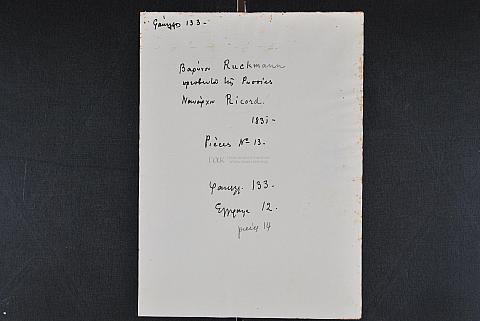 Φάκελλο 133 -
Βαρώνου Ruckmann
πρεσβευτού τῆς Ρωσσίας
Ναυάρχου Ricord.
1831 -
Pièces Nº 13 -
φακελ. 133 -
Ἔγγραφα 12 -
pièces 14